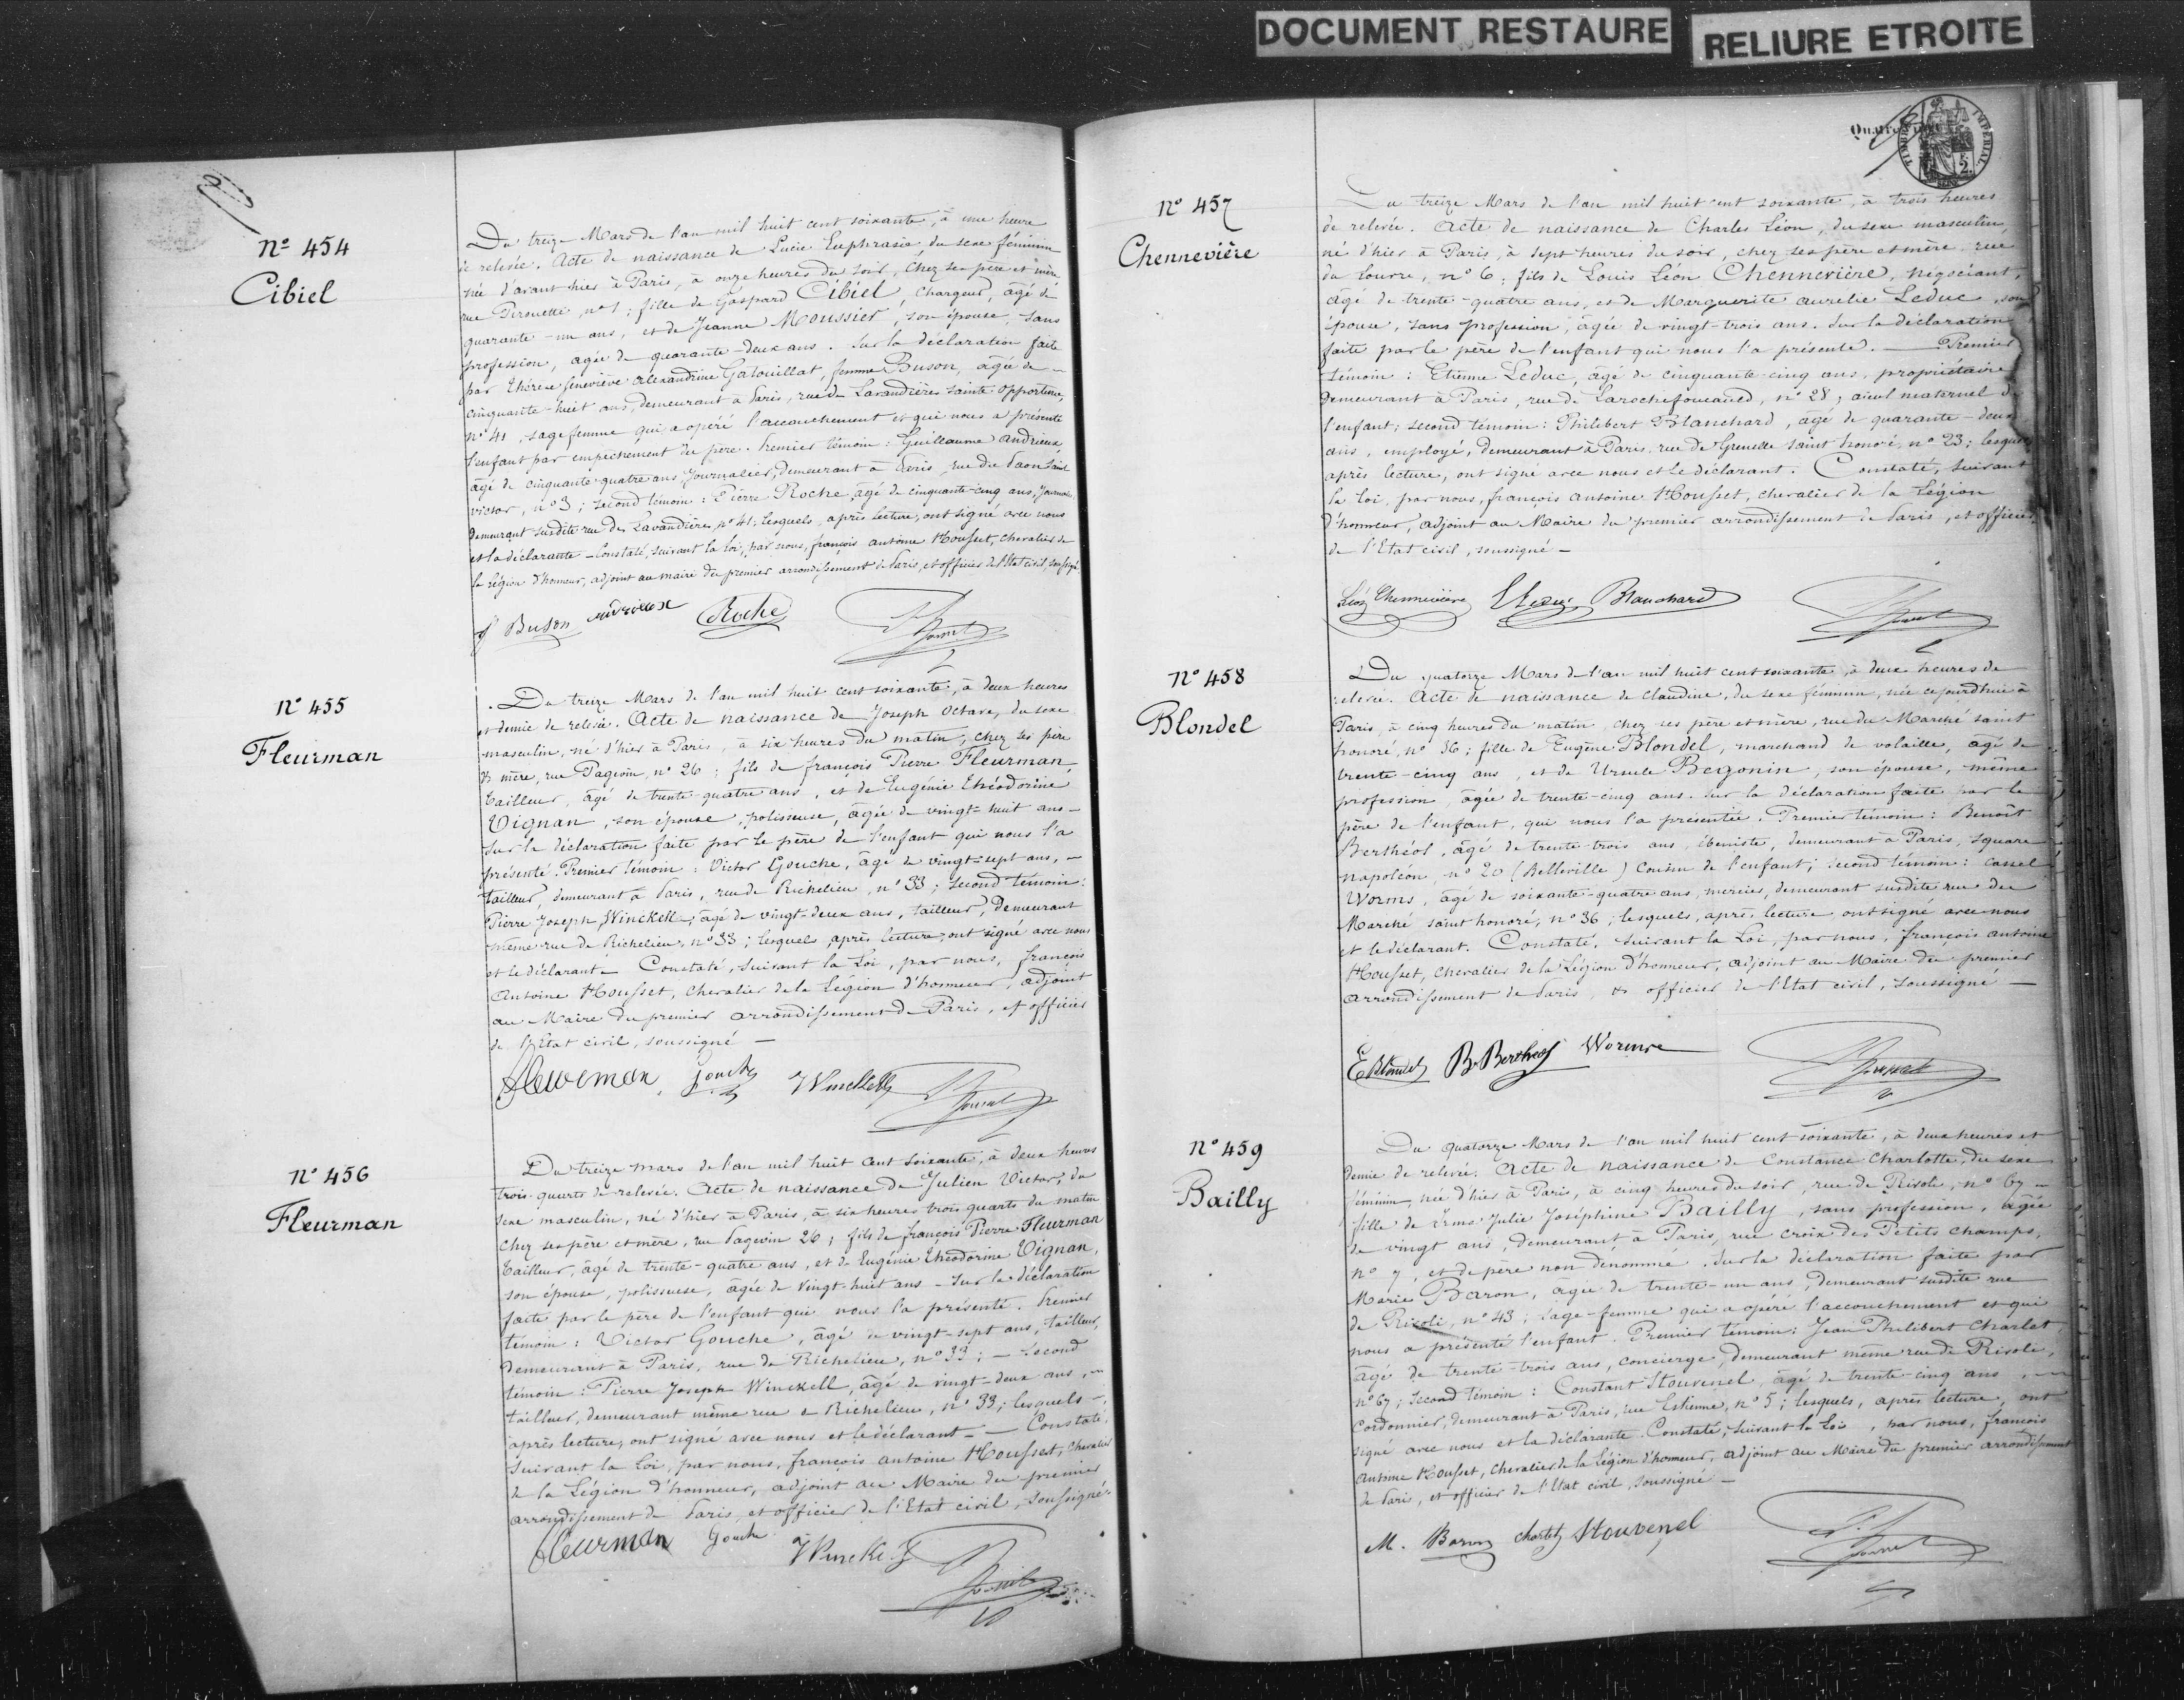 DOCUMENT RESTAURE
RELIURE ETROITE
N° 454
Cibiel
Du treize Mars de l'an mil huit cent soixante, à une heure
de relevée. Acte de naissance de Lucie Euphrasie du sexe féminin
née d'avant hier à Paris, à onze heures du soir, chez ses père et mère
rue Pirouette, n° 1; fille de Gaspard Cibiel, chargeur, âgé de
quarante-un ans, et de Jeanne Moussier, son épouse, sans
profession, âgée de quarante-deux ans. Sur la déclaration faite
par Thérèse Geneviève Alexandrine Gatouillat, femme Buson, âgée de
cinquante-huit ans, demeurant à Paris, rue des Lavandières Sainte Opportune,
n° 41, sage femme qui a opéré l'accouchement et qui nous a présenté
l'enfant par empêchement du père. Premier témoin: Guillaume Andrieux
âgé de cinquante quatre ans, Journalier, demeurant à Paris, rue du Paon Saint
victor, n° 3; second témoin: Pierre Roche, âgé de cinquante-cinq ans, Journalier,
demeurant susdite rue des Lavandières, n° 41; lesquels, après lecture, ont signé avec nous
et la déclarante - Constaté, suivant la loi, par nous, françois antoine Housset, chevalier de
la Légion d'honneur, adjoint au maire du premier arrondissement de Paris, et officier de l'Etat civil, soussigné.
f Buson andrieux Roche
N° 455
Fleurman
Du treize Mars de l'an mil huit cent soixante, à deux heures
et demie de relevée. Acte de naissance de Joseph Octave, du sexe
masculin, né d'hier à Paris, à six heures du matin, chez ses père
& mère, rue Pagevin, n° 26; fils de françois Pierre Fleurman,
tailleur, âgé de trente-quatre ans, et de Eugénie Théodorine
Vignan, son épouse, polisseuse, âgée de vingt-huit ans -
Sur la déclaration faite par le père de l'enfant qui nous l'a
présenté. Premier témoin: Victor Gouche, âgé de vingt-sept ans, -
tailleur, demeurant à Paris, rue de Richelieu, n° 33; second témoin:
Pierre Joseph Winckell, âgé de vingt-deux ans, tailleur, demeurant
même rue de Richelieu, n° 33; lesquels, après lecture, ont signé avec nous
et le déclarant - Constaté, suivant la Loi, par nous, françois
Antoine Housset, chevalier de la Légion d'honneur, adjoint
au Maire du premier arrondissement de Paris, et officier
de l'Etat civil, soussigné -
fleurman Gouche Winckell
N° 456
Fleurman
Du treize mars de l'an mil huit cent soixante, à deux heures
trois quarts de relevée. Acte de naissance de Julien Victor, du
sexe masculin, né d'hier à Paris, à six heures trois quarts du matin
chez ses père et mère, rue Pagevin 26; fils de françois Pierre Fleurman
tailleur, âgé de trente-quatre ans, et de Eugénie Théodorine Vignan,
son épouse, polisseuse, âgée de vingt-huit ans - Sur la déclaration
faite par le père de l'enfant qui nous l'a présenté. Premier
témoin: Victor Gouche, âgé de vingt-sept ans, tailleur,
demeurant à Paris, rue de Richelieu, n° 33; - second
témoin: Pierre Joseph Winckell, âgé de vingt-deux ans, -
tailleur, demeurant même rue de Richelieu, n° 33; lesquels -
après lecture, ont signé avec nous et le déclarant - - Constaté,
suivant la Loi, par nous, françois antoine Housset, chevalier
de la Légion d'honneur, adjoint au Maire du premier
arrondissement de Paris, et officier de l'Etat civil, soussigné.
fleurman Gouche Winckell
TIMBRE IMPERIAL
N° 457
Chennevière
Du treize Mars de l'an mil huit cent soixante, à trois heures
de relevée. Acte de naissance de Charles Léon, du sexe masculin,
né d'hier à Paris, à sept heures du soir, chez ses père et mère, rue
du Louvre, n° 6; fils de Louis Léon Chennevière, négociant,
âgé de trente-quatre ans, et de Marguerite aurelie Leduc, son
épouse, sans profession, âgée de vingt-trois ans. Sur la déclaration
faite par le père de l'enfant qui nous l'a présenté. - Premier
témoin: Etienne Leduc, âgé de cinquante-cinq ans, propriétaire
demeurant à Paris, rue de Larochefoucauld, n° 28; aïeul maternel de
l'enfant; second témoin: Philibert Blanchard, âgé de quarante-deux
ans, employé, demeurant à Paris, rue de Grenelle saint honoré, n° 23; lesquels
après lecture, ont signé avec nous et le déclarant. Constaté, suivant
la loi, par nous, françois antoine Housset, chevalier de la Légion
d'honneur, adjoint au Maire du premier arrondissement de Paris, et officier
de l'Etat civil, soussigné -
Léon Chennevière E Leduc Blanchard
N° 458
Blondel
Du quatorze Mars de l'an mil huit cent soixante, à deux heures de
relevée. Acte de naissance de Claudine, du sexe féminin, née cejourd'hui à
Paris, à cinq heures du matin chez ses père et mère, rue du Marché saint
honoré, n° 36; fille de Eugène Blondel, marchand de volaille, âgé de
trente-cinq ans, et de Ursule Begonin, son épouse, même
profession, âgée de trente-cinq ans. Sur la déclaration faite par le
père de l'enfant, qui nous l'a présentée. Premier témoin: Benoît
Berthéol, âgé de trente trois ans, ébéniste, demeurant à Paris, square
napoléon, n° 20 (Belleville) Cousin de l'enfant; second témoin: Cassel
Worms, âgé de soixante-quatre ans, mercier, demeurant susdite rue du
Marché saint honoré, n° 36; lesquels, après lecture, ont signé avec nous
et le déclarant. Constaté, suivant la Loi, par nous, françois antoine
Housset, chevalier de la Légion d'honneur, adjoint au Maire du premier
arrondissement de Paris, & officier de l'Etat civil, soussigné -
E Blondel B. Bertheol Worms
N° 459
Bailly
Du quatorze Mars de l'an mil huit cent soixante, à deux heures et
demie de relevée. Acte de naissance de Constance Charlotte, du sexe
féminin, née d'hier à Paris, à cinq heures du soir, rue de Rivoli, n° 67 -
fille de Irma Julie Joséphine Bailly, sans profession, âgée
de vingt ans, demeurant à Paris, rue croix des Petits champs,
n° 7, et de père non dénommé. Sur la déclaration faite par
Marie Baron, âgée de trente-un ans, demeurant susdite rue
de Rivoli, n° 43; sage-femme qui a opéré l'accouchement et qui
nous a présenté l'enfant. Premier témoin: Jean Philibert Charlet
âgé de trente-trois ans, concierge, demeurant même rue de Rivoli,
n° 67; second témoin: Constant Stouvenel, âgé de trente-cinq ans, -
Cordonnier, demeurant à Paris, rue Estienne, n° 5; lesquels, après lecture, ont
signé avec nous et la déclarante. Constaté, suivant la Loi, par nous, françois
Antoine Housset, chevalier de la Légion d'honneur, adjoint au Maire du premier arrondissement
de Paris, et officier de l'Etat civil, soussigné -
M. Baron Charlet Stouvenel